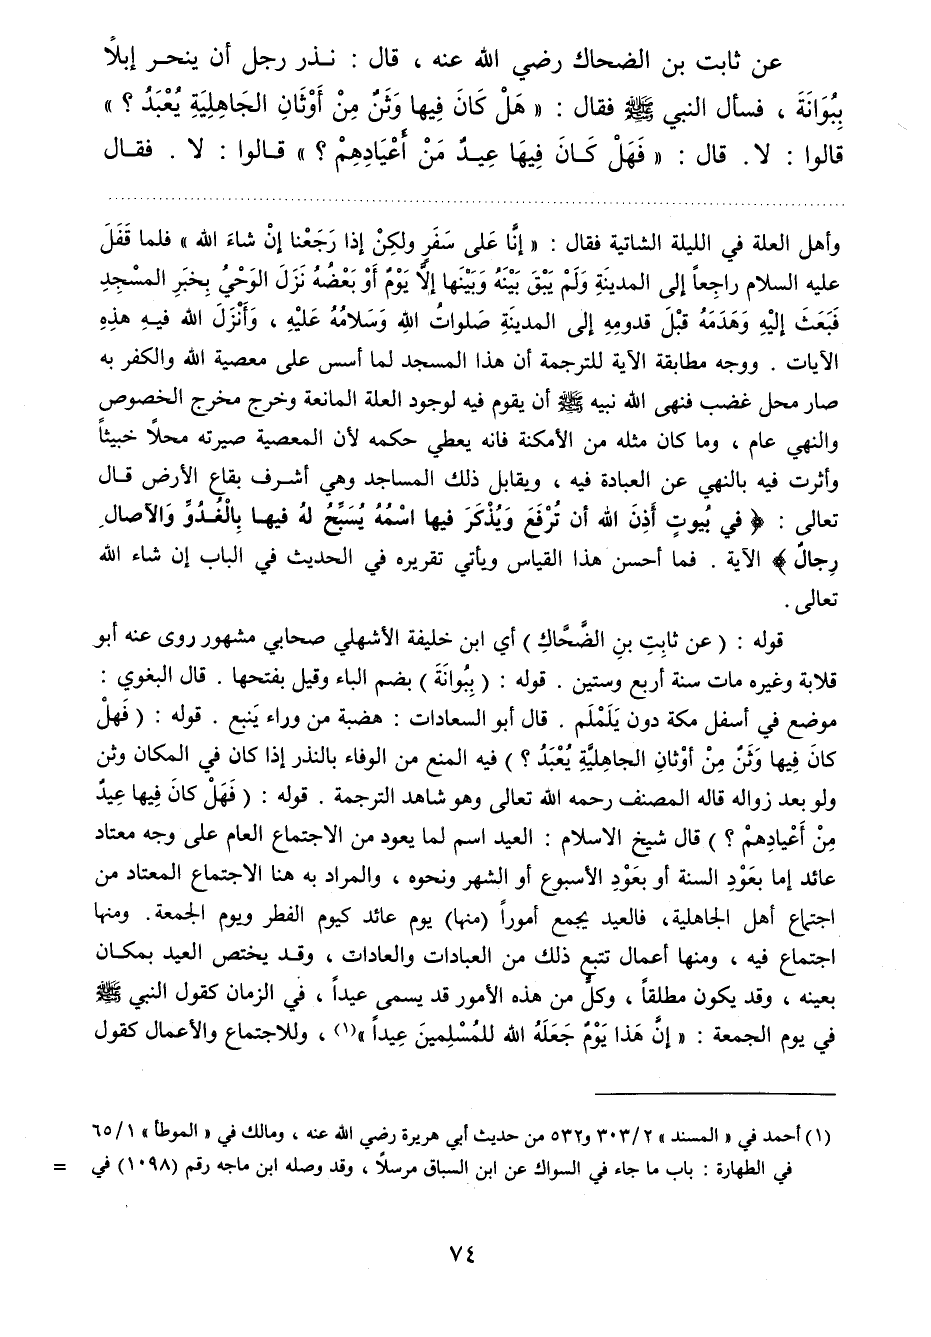 عن ثابت بن الضحاك رضي الله عنه ، قال : نـذر رجـل أن ينحـر إبلاً
بِبُوَانَةَ ، فسأل النبي ﷺ فقال : « هَلْ كَانَ فِيها وَثَنٌ مِنْ أَوْثَانِ الجَاهِلِيَةِ يُعْبَدُ ؟ »
قالوا : لا. قال : « فَهَلْ كَـانَ فِيهَا عِيـدٌ مَنْ أَعْيَادِهِمْ ؟ » قـالوا : لا . فقـال
وأهل العلة في الليلة الشاتية فقال : « إنَّا عَلى سَفَرٍ ولكِنْ إذا رَجَعْنا إنْ شاءَ الله » فلما قَفَلَ
عليه السلام راجعاً إلى المدينَةِ وَلَمْ يَبْقَ بَيْنَهُ وَبَيْنَها إلَّا يَوْمٌ أَوْ بَعْضُهُ نَزَلَ الوَحْيُ بِخَبَرِ المسْجِدِ
فَبَعَثَ إلَيْهِ وَهَدَمَهُ قبْلَ قدومِهِ إلى المدينَةِ صَلواتُ اللهِ وَسَلامُهُ عَلَيْهِ ، وَأَنْزَلَ الله فيـهِ هذِهِ
الآيات . ووجه مطابقة الآية للترجمة أن هذا المسجد لما أسس على معصية الله والكفر به
صار محل غضب فنهى الله نبيه ﷺ أن يقوم فيه لوجود العلة المانعة وخرج مخرج الخصوص
والنهي عام ، وما كان مثله من الأمكنة فانه يعطي حكمه لأن المعصية صيرته محلاً خبيثاً
وأثرت فيه بالنهي عن العبادة فيه ، ويقابل ذلك المساجد وهي أشـرف بقاع الأرض قـال
تعالى : ﴿ في بُيوتٍ أَذِنَ الله أن تُرْفَعَ وَيُذْكَرَ فيها اسْمُهُ يُسَبِّحُ لهُ فيهـا بِالْغُدُوِّ وَالآصال ِ
رِجالٌ ﴾ الآية . فما أحسن هذا القياس ويأتي تقريره في الحديث في الباب إن شاء الله
تعالى .
قوله : ( عن ثابِتِ بنِ الضَّحَّاكِ ) أي ابن خليفة الأشهلي صحابي مشهور روى عنه أبو
قلابة وغيره مات سنة أربع وستين . قوله : ( بِبُوانَةَ ) بضم الباء وقيل بفتحها . قال البغوي :
موضع في أسفل مكة دون يَلَمْلَم . قال أبو السعادات : هضبة من وراء يَنبع . قوله : ( فَهلْ
كانَ فِيها وَثَنٌ مِنْ أَوْثانِ الجاهليَّةِ يُعْبَدُ ؟ ) فيه المنع من الوفاء بالنذر إذا كان في المكان وثن
ولو بعد زواله قاله المصنف رحمه الله تعالى وهو شاهد الترجمة . قوله : ( فَهَلْ كانَ فيها عِيدٌ
مِنْ أَعْيادِهمْ ؟ ) قال شيخ الاسلام : العيد اسم لما يعود من الاجتماع العام على وجه معتاد
عائد إما بعَوْدِ السنة أو بعَوْدِ الأسبوع أو الشهر ونحوه ، والمراد به هنا الاجتماع المعتاد من
اجتماع أهل الجاهلية، فالعيد يجمع أموراً (منها) يوم عائد كيوم الفطر ويوم الجمعة. ومنها
اجتماع فيه ، ومنها أعمال تتبع ذلك من العبادات والعادات ، وقـد يختص العيد بمكـان
بعينه ، وقد يكون مطلقاً ، وكلٌّ من هذه الأمور قد يسمى عيداً ، في الزمان كقول النبي ﷺ
في يوم الجمعة : « إنَّ هَذا يَوْمٌ جَعَلَهُ الله للمُسْلِمينَ عِيداً »(١) ، وللاجتماع والأعمال كقول
(١) أحمد في « المسند » ٣٠٣/٢ و٥٣٢ من حديث أبي هريرة رضي الله عنه ، ومالك في « الموطأ » ٦٥/١
في الطهارة : باب ما جاء في السواك عن ابن السباق مرسلاً ، وقد وصله ابن ماجه رقم (١٠٩٨) في =
٧٤